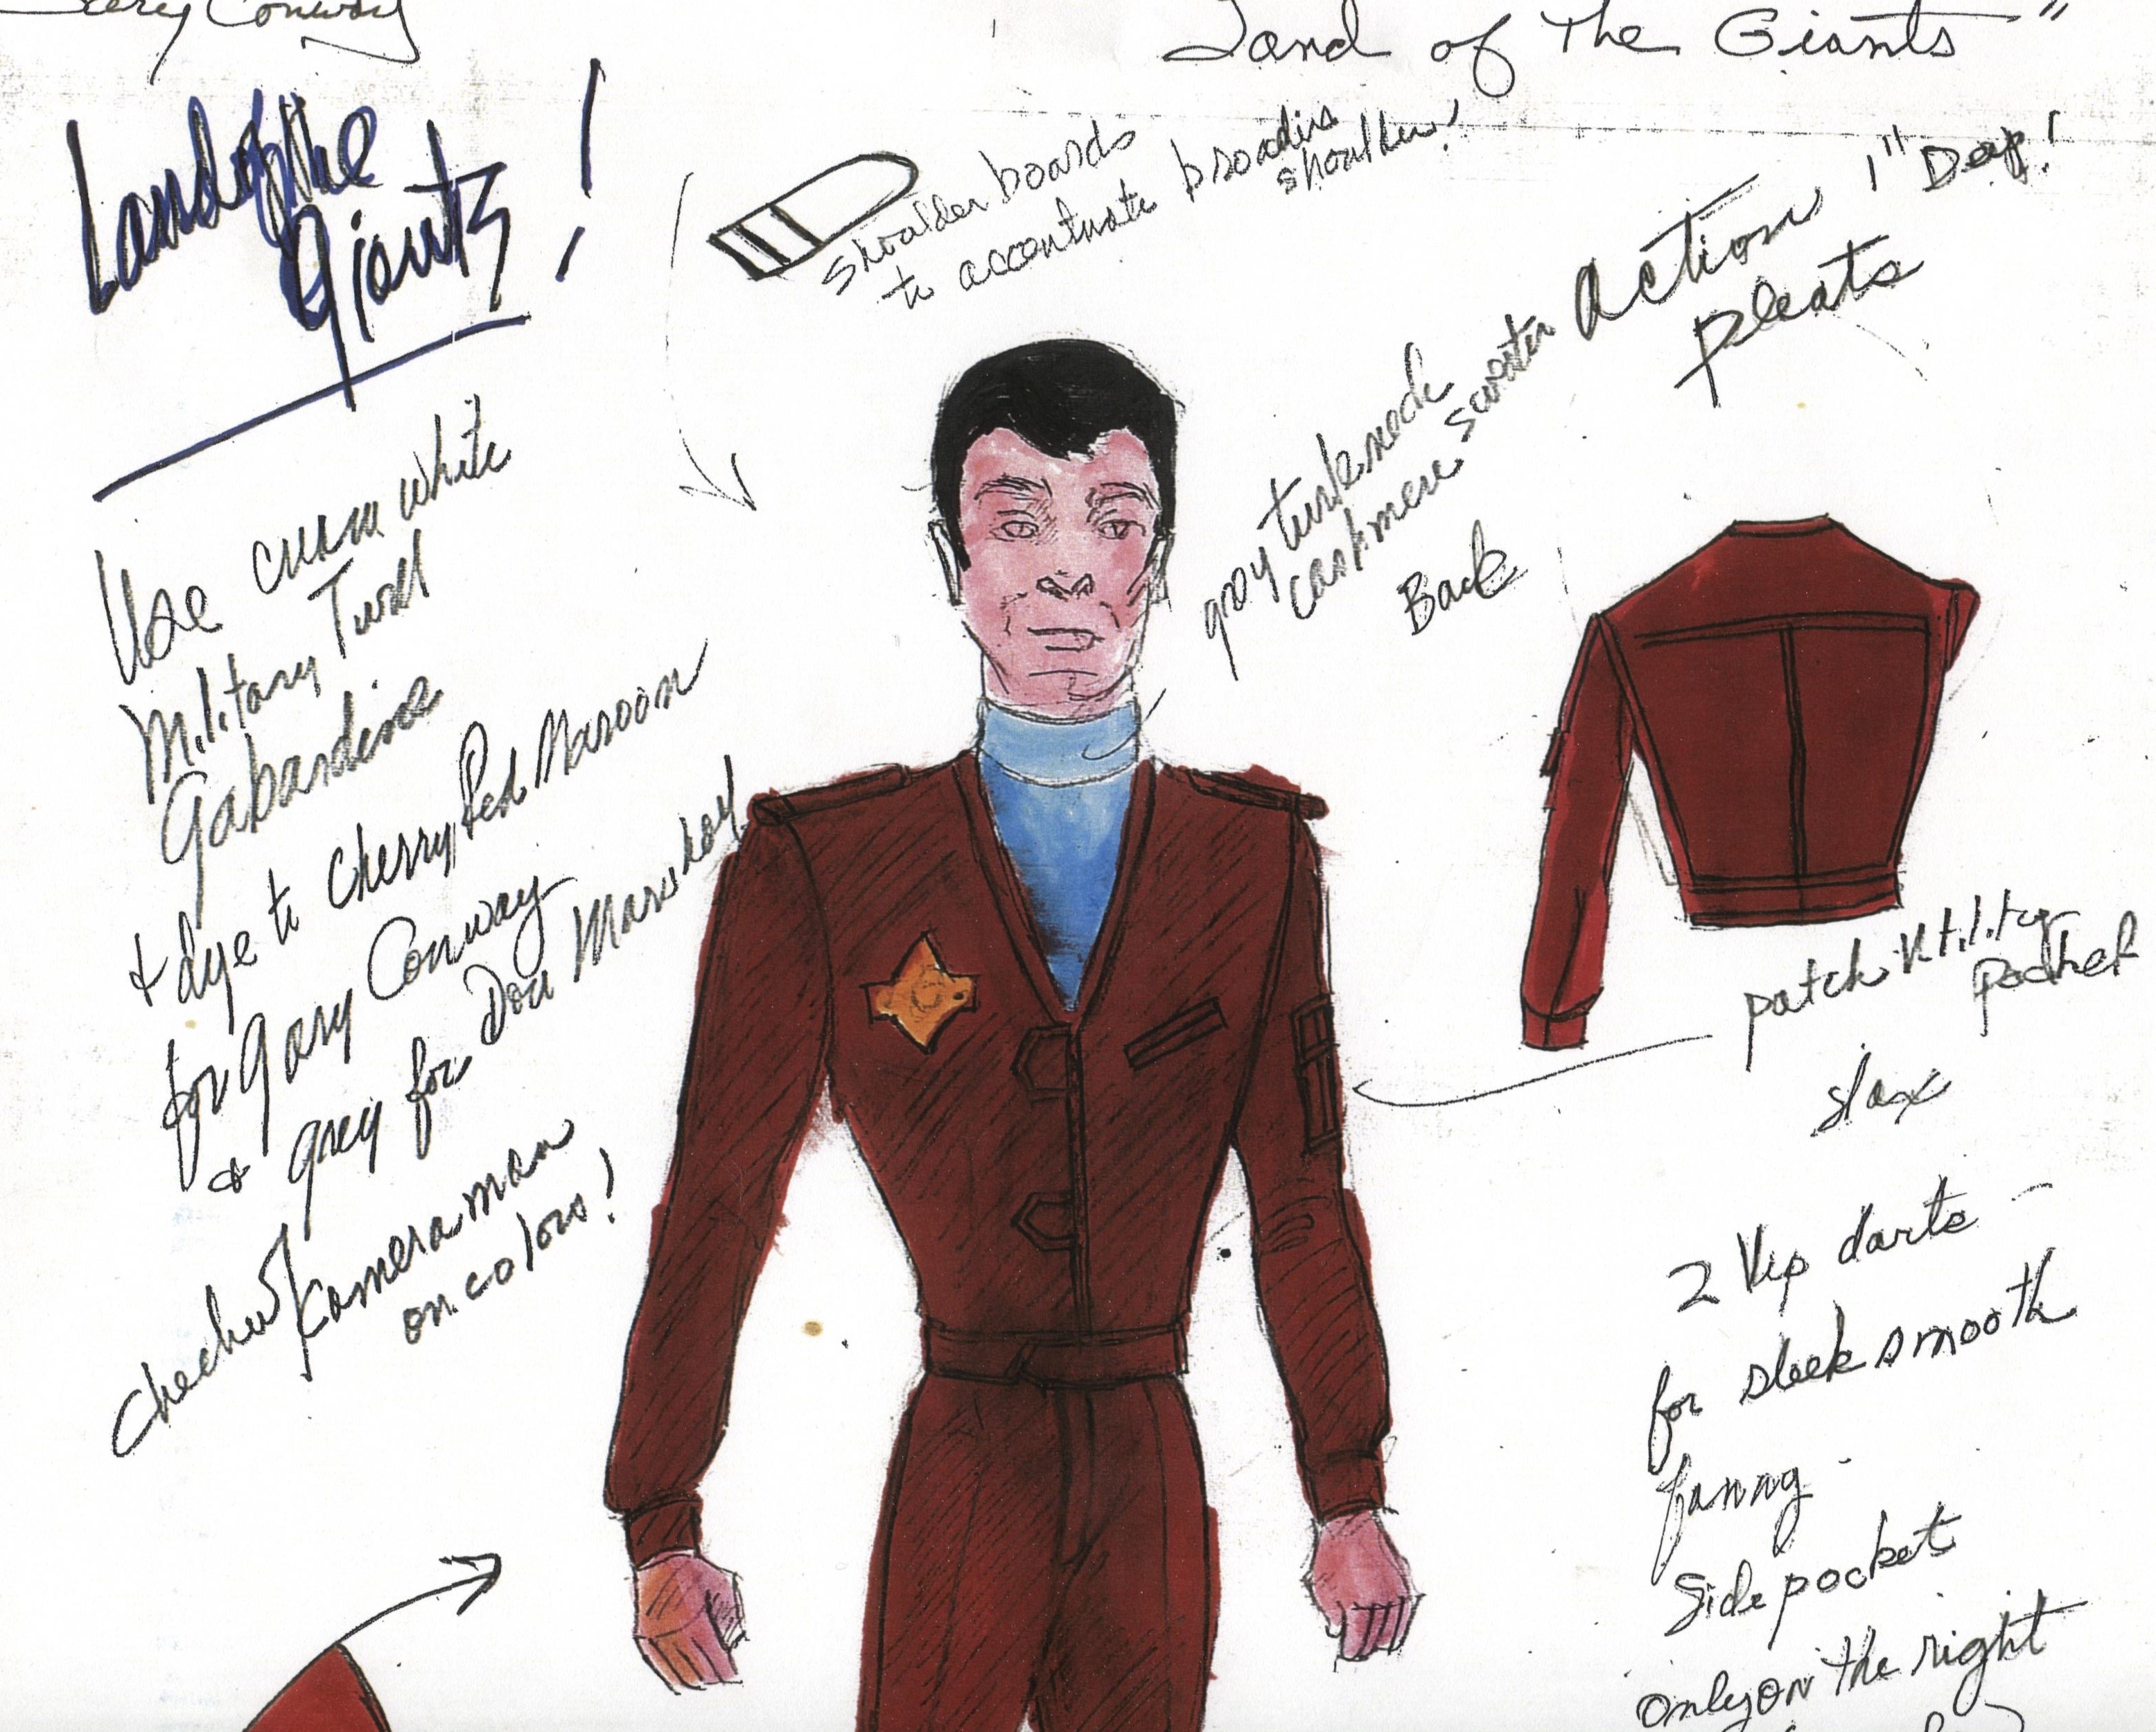 Gary Conway
Land of The Giants"
Land of the
Giants!
shoulder boards
to accentuate broadis
shoulders!
Action 1" Deep!
pleats
gray turtleneck
cashmere sweater
Back
Use cream white
Military Twill
Gabardine
+ dye to Cherry Red Maroon
for Gary Conway
& grey for Don Marshall
check w/ Kameraman
on colors!
patch utility
pocket
slax
2 Hip darts -
for sleek smooth
fanny -
Side pocket
only on the right